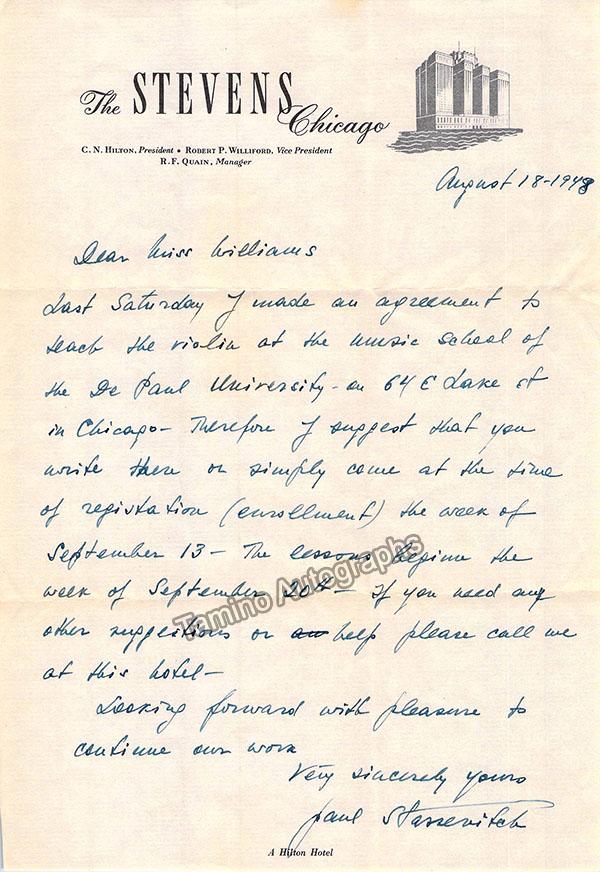 The STEVENS
Chicago
C. N. HILTON, President • ROBERT P. WILLIFORD, Vice President
R. F. QUAIN, Manager
August 18-1948
Dear Miss Williams
Last Saturday I made an agreement to
teach the violin at the music school of
the De Paul University - on 64 E Lake st
in Chicago - Therefore I suggest that you
write there or simply come at the time
of registation (enrollment) the week of
September 13 - The lessons begine the
week of September 20th - If you need any
other suggestions or help please call me
at this hotel -
Looking forward with pleasure to
continue our work
Very sincerely yours
Paul Stassevitch
A Hilton Hotel
Tamino Autographs